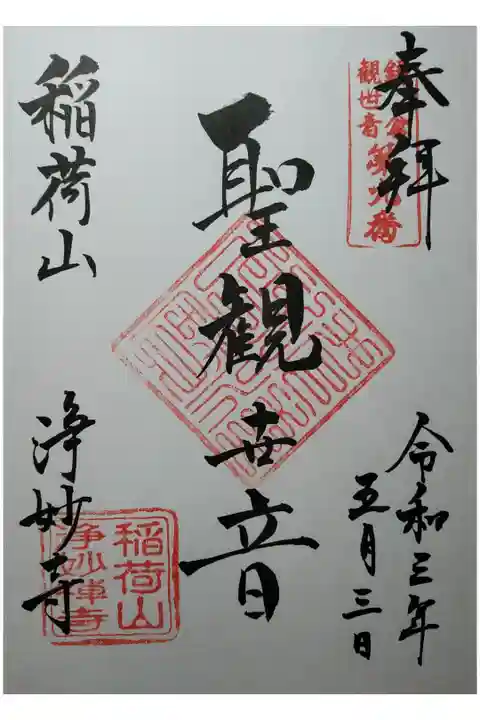 奉拝
観世音第九番
令和三年
五月三日
聖觀世音
稲荷山
浄妙寺
稲荷山
浄妙禅寺